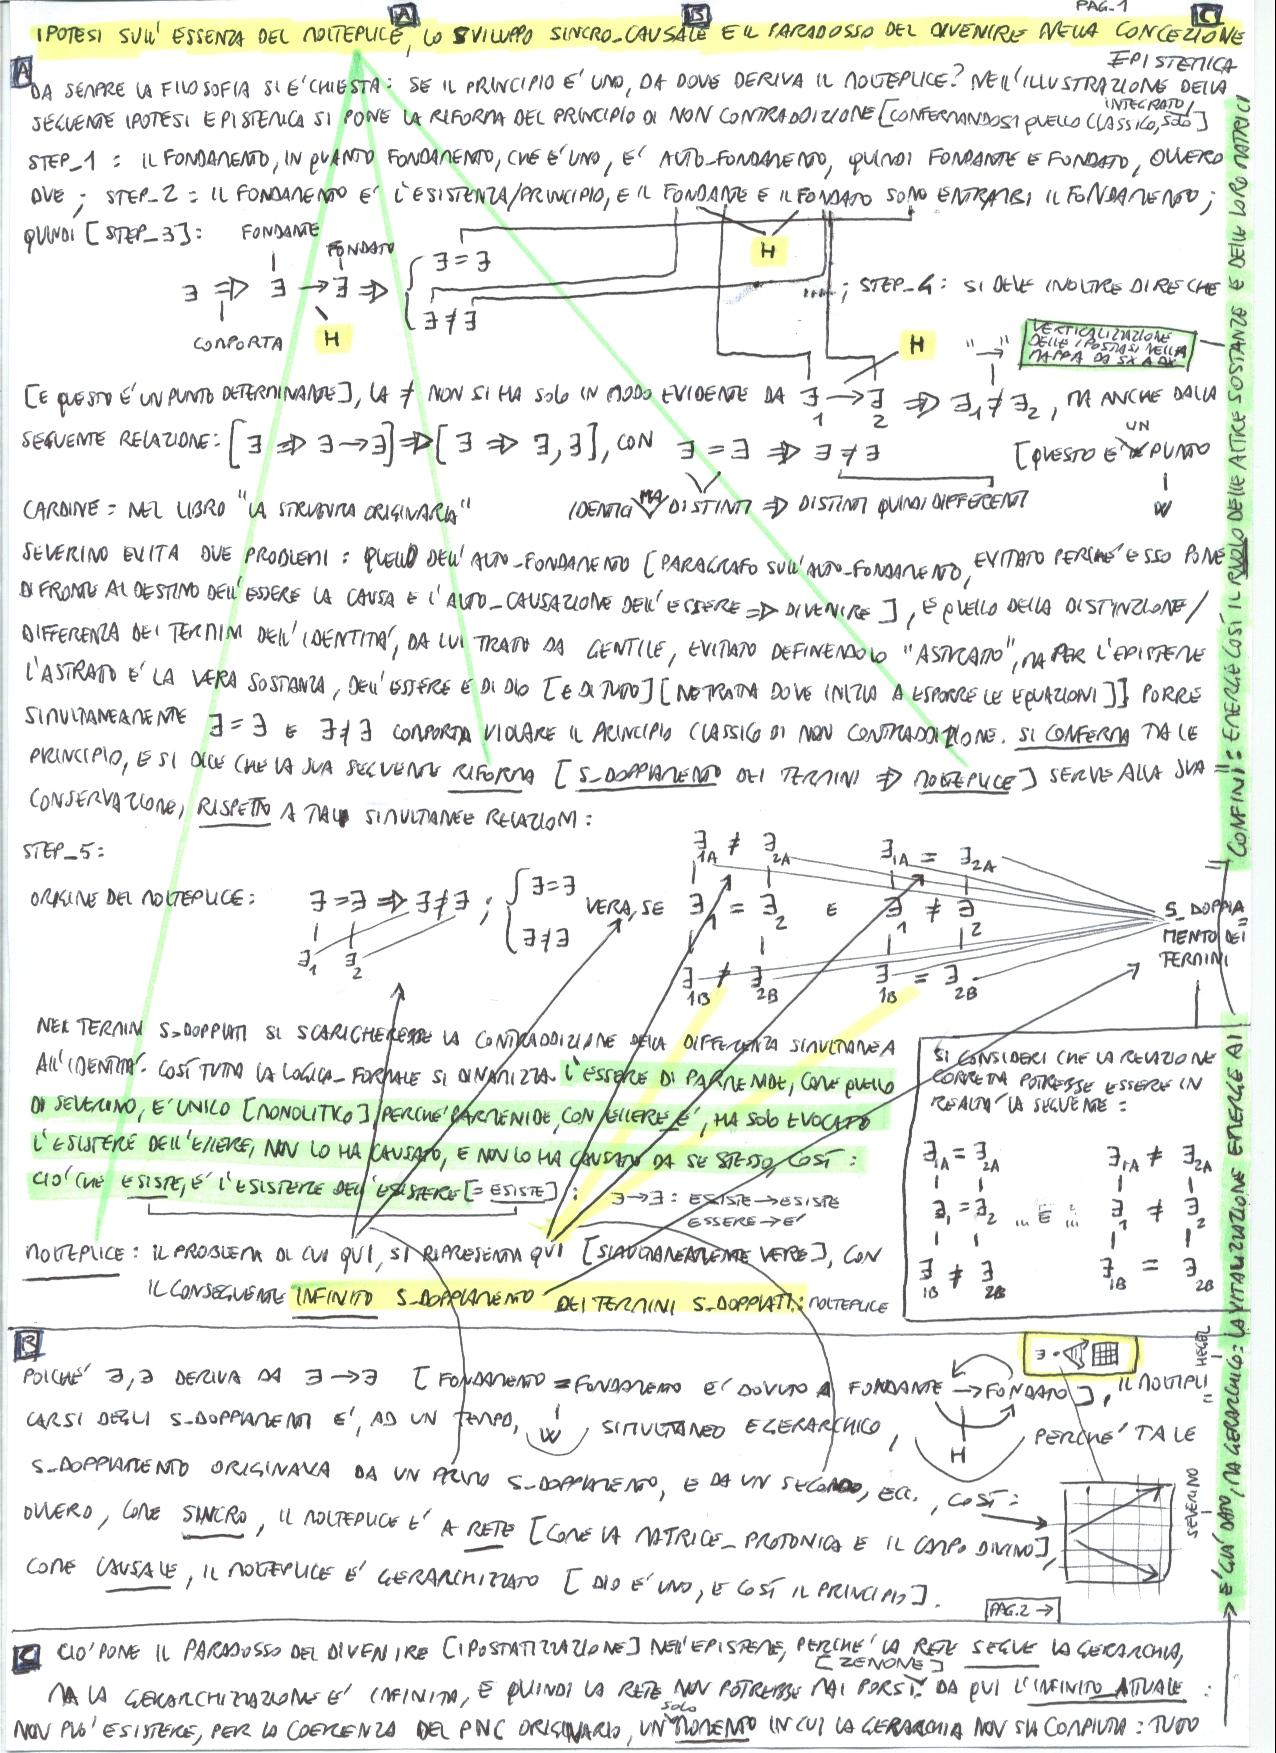 PAG-1
A B C
IPOTESI SULL'ESSENZA DEL MOLTEPLICE, LO SVILUPPO SINCRO-CAUSALE E IL PARADOSSO DEL DIVENIRE NELLA CONCEZIONE
EPISTEMICA
A
DA SEMPRE LA FILOSOFIA SI E' CHIESTA: SE IL PRINCIPIO E' UNO, DA DOVE DERIVA IL MOLTEPLICE? NELL'ILLUSTRAZIONE DELLA
SEGUENTE IPOTESI EPISTEMICA SI PONE LA RIFORMA DEL PRINCIPIO DI NON CONTRADDIZIONE [CONFERMANDOSI QUELLO CLASSICO, INTEGRATO/SOLO]
STEP_1: IL FONDAMENTO, IN QUANTO FONDAMENTO, CHE E' UNO, E' AUTO-FONDAMENTO, QUINDI FONDANTE E FONDATO, OVVERO
DUE; STEP_2: IL FONDAMENTO E' L'ESISTENZA/PRINCIPIO, E IL FONDANTE E IL FONDATO SONO ENTRAMBI IL FONDAMENTO;
QUINDI [STEP_3]: FONDANTE FONDATO
∃ ⇒ ∃ → ∃ ⇒ { ∃ = ∃
∃ ≠ ∃
H
COMPORTA H
....; STEP_4: SI DEVE INOLTRE DIRE CHE
H "→" VERTICALIZZAZIONE
DELLE IPOSTASI NELLA
MAPPA DA SX A DX
[E QUESTO E' UN PUNTO DETERMINANTE], LA ≠ NON SI HA SOLO IN MODO EVIDENTE DA ∃1 → ∃2 ⇒ ∃1 ≠ ∃2, MA ANCHE DALLA
SEGUENTE RELAZIONE: [∃ ⇒ ∃ → ∃] ⇒ [∃ ⇒ ∃, ∃], CON ∃ = ∃ ⇒ ∃ ≠ ∃ [QUESTO E' UN PUNTO
W
CARDINE: NEL LIBRO "LA STRUTTURA ORIGINARIA" IDENTICI MA DISTINTI ⇒ DISTINTI QUINDI DIFFERENTI
SEVERINO EVITA DUE PROBLEMI: QUELLO DELL'AUTO-FONDAMENTO [PARAGRAFO SULL'AUTO-FONDAMENTO, EVITATO PERCHE' ESSO PONE
DI FRONTE AL DESTINO DELL'ESSERE LA CAUSA E L'AUTO-CAUSAZIONE DELL'ESSERE ⇒ DIVENIRE], E QUELLO DELLA DISTINZIONE/
DIFFERENZA DEI TERMINI DELL'IDENTITA', DA LUI TRATTO DA GENTILE, EVITATO DEFINENDOLO "ASTRATTO", MA PER L'EPISTEME
L'ASTRATTO E' LA VERA SOSTANZA, DELL'ESSERE E DI DIO [E DI TUTTO] [NE TRATTA DOVE INIZIA A ESPORRE LE EQUAZIONI]] PORRE
SIMULTANEAMENTE ∃ = ∃ E ∃ ≠ ∃ COMPORTA VIOLARE IL PRINCIPIO CLASSICO DI NON CONTRADDIZIONE. SI CONFERMA TALE
PRINCIPIO, E SI DICE CHE LA SUA SEGUENTE RIFORMA [S_DOPPIAMENTO DEI TERMINI ⇒ MOLTEPLICE] SERVE ALLA SUA
CONSERVAZIONE, RISPETTO A TALI SIMULTANEE RELAZIONI:
STEP_5:
ORIGINE DEL MOLTEPLICE: ∃ = ∃ ⇒ ∃ ≠ ∃ ; { ∃ = ∃
∃ ≠ ∃
∃1 ∃2
VERA, SE
∃1A ≠ ∃2A ∃1A = ∃2A
∃1 = ∃2 E ∃1 ≠ ∃2
∃1B ≠ ∃2B ∃1B = ∃2B
S_DOPPIA
MENTO DEI
TERMINI
NEI TERMINI S_DOPPIATI SI SCARICHEREBBE LA CONTRADDIZIONE DELLA DIFFERENZA SIMULTANEA
ALL'IDENTITA'. COSI' TUTTA LA LOGICA-FORMALE SI DINAMIZZA. L'ESSERE DI PARMENIDE, COME QUELLO
DI SEVERINO, E' UNICO [MONOLITICO] PERCHE' PARMENIDE, CON ESSERE E', HA SOLO EVOCATO
L'ESISTERE DELL'ESSERE, NON LO HA CAUSATO, E NON LO HA CAUSATO DA SE STESSO, COSI':
CIO' CHE ESISTE, E' L'ESISTERE DELL'ESISTERE [= ESISTE]: ∃ → ∃: ESISTE → ESISTE
ESSERE → E'
MOLTEPLICE: IL PROBLEMA DI CUI QUI, SI RIPRESENTA QUI [SIMULTANEAMENTE VERE], CON
IL CONSEGUENTE INFINITO S_DOPPIAMENTO DEI TERMINI S_DOPPIATI: MOLTEPLICE
SI CONSIDERI CHE LA RELAZIONE
CORRETTA POTREBBE ESSERE IN
REALTA' LA SEGUENTE:
∃1A = ∃2A ∃1A ≠ ∃2A
∃1 = ∃2 ... E ... ∃1 ≠ ∃2
∃1B ≠ ∃2B ∃1B = ∃2B
B
POICHE' ∃, ∃ DERIVA DA ∃ → ∃ [FONDAMENTO = FONDAMENTO E' DOVUTO A FONDANTE → FONDATO], IL MOLTIPLI
CARSI DEGLI S_DOPPIAMENTI E', AD UN TEMPO, W SIMULTANEO E GERARCHICO, H PERCHE' TALE
S_DOPPIAMENTO ORIGINAVA DA UN PRIMO S_DOPPIAMENTO, E DA UN SECONDO, ECC., COSI':
OVVERO, COME SINCRO, IL MOLTEPLICE E' A RETE [COME LA MATRICE_PROTONICA E IL CAMPO DIVINO],
COME CAUSALE, IL MOLTEPLICE E' GERARCHIZZATO [DIO E' UNO, E COSI' IL PRINCIPIO].
PAG.2 →
HEGEL
SEVERINO
C
CIO' PONE IL PARADOSSO DEL DIVENIRE [IPOSTATIZZAZIONE] NELL'EPISTEME, PERCHE' LA RETE SEGUE LA GERARCHIA,
[ZENONE]
MA LA GERARCHIZZAZIONE E' INFINITA, E QUINDI LA RETE NON POTREBBE MAI PORSI. DA QUI L'INFINITO ATTUALE:
NON PUO' ESISTERE, PER LA COERENZA DEL PNC ORIGINARIO, UN SOLO MOMENTO IN CUI LA GERARCHIA NON SIA COMPIUTA: TUTTO
E' GIA' DATO, MA GERARCHICO: LA VITALIZZAZIONE EMERGE AI
CONFINI: EMERGE COSI' IL RUOLO DELLE ALTRE SOSTANZE E DELLE LORO MATRICI